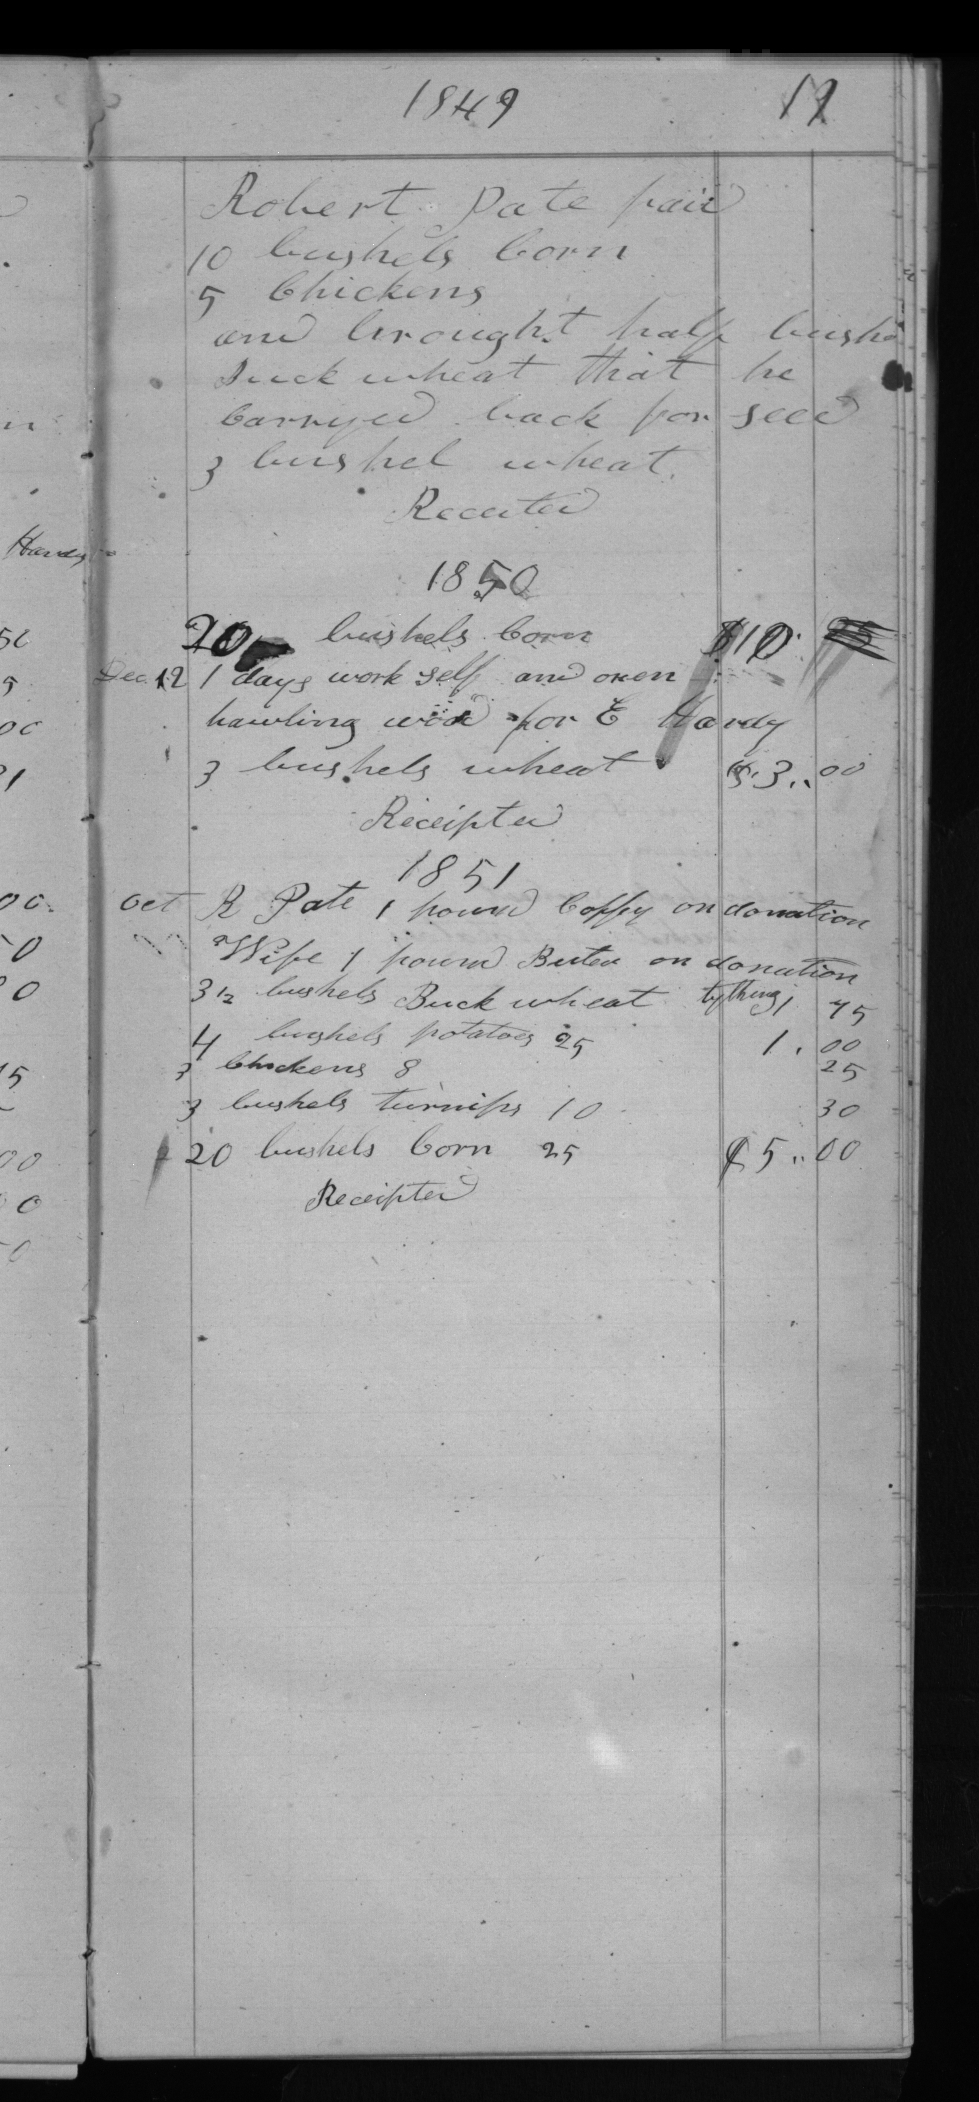 1849 11
Robert Pate paid
10 bushels Corn
5 Chickens
and brought half bush
Buck wheat that he
Carryed back for seed
3 bushel wheat.
Receited
Hardy
1850
20 bushels Corn $10
Dec. 12 1 days work self and oxen
hawling wood for E Hardy
3 bushels wheat $3.. 00
Receipted
1851
Oct R Pate 1 pound Coffy on donation
Wife 1 pound Buter on donation
3 1/2 bushels Buck wheat tything 1 75
4 bushels potatoes 25 1. 00
3 Chickens 8 25
3 bushels turnips 10 30
20 bushels Corn 25 $5.. 00
Receipted